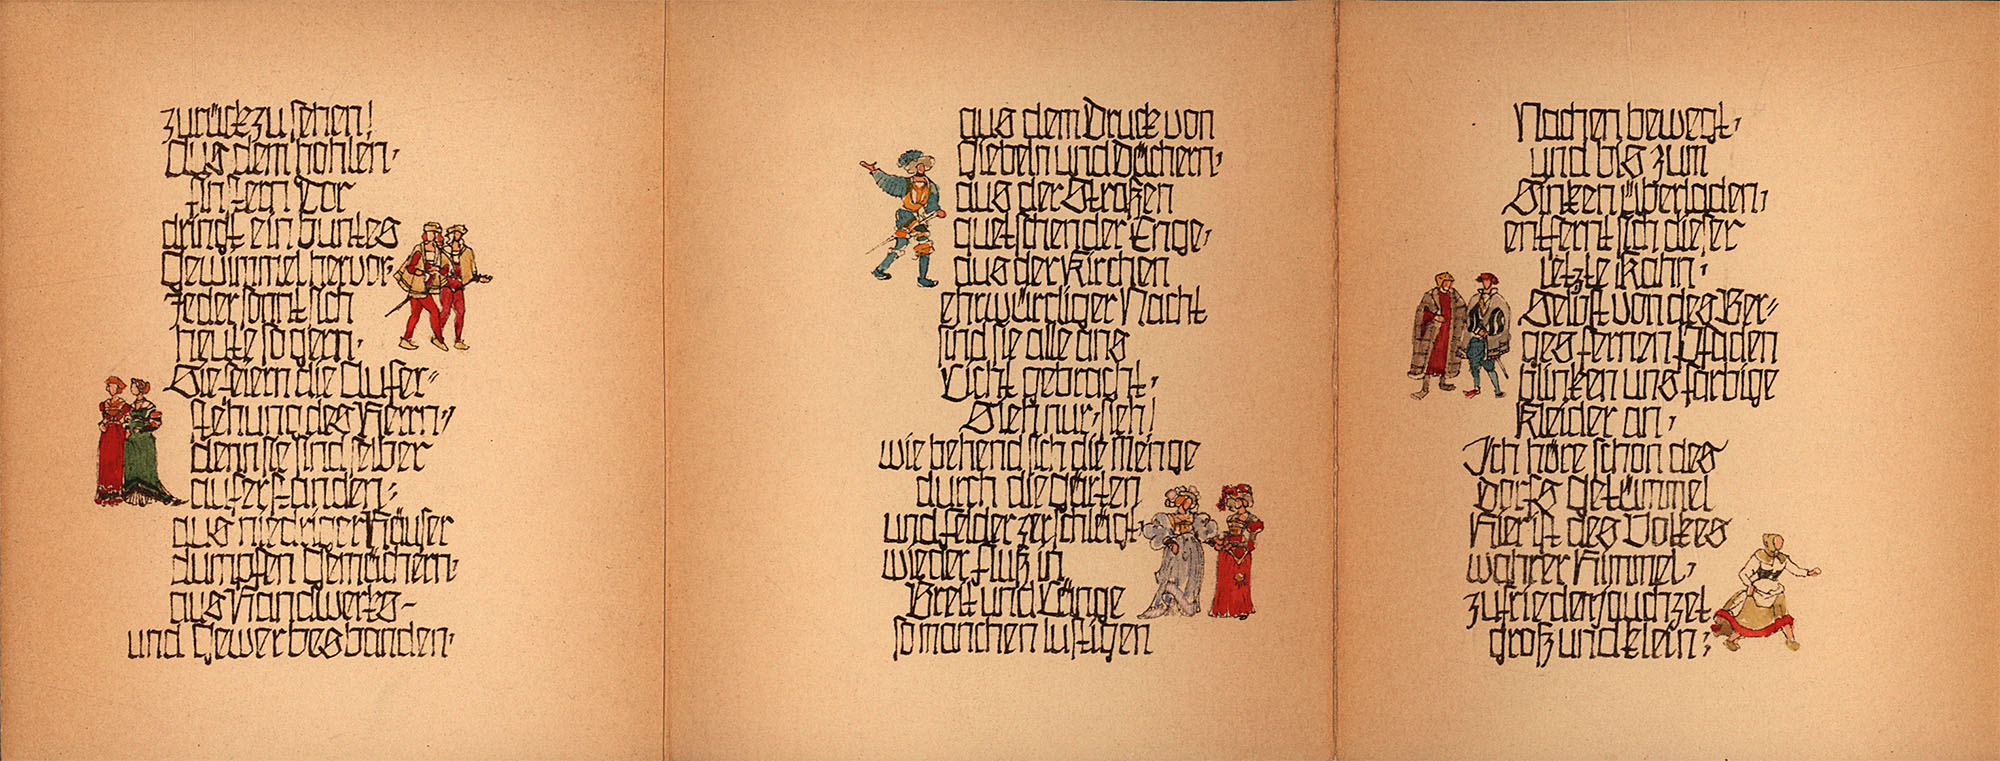 zurückzusehen!
Aus dem hohlen,
finstern Tor
dringt ein buntes
Gewimmel hervor.
Jeder sonnt sich
heute so gern.
Sie feiern die Aufer-
stehung des Herrn,
denn sie sind selber
auferstanden:
aus niedriger Häuser
dumpfen Gemächern,
aus Handwerks-
und Gewerbesbanden,
aus dem Druck von
Giebeln und Dächern,
aus der Straßen
quetschender Enge,
aus der Kirchen
ehrwürdiger Nacht
sind sie alle ans
Licht gebracht.
Sieh nur, sieh!
wie behend sich die Menge
durch die Gärten
und Felder zerschlägt,
wie der Fluß in
Breit und Länge
so manchen lustigen
Nachen bewegt,
und bis zum
Sinken überladen,
entfernt sich dieser
letzte Kahn.
Selbst von des Ber-
ges fernen Pfaden
blinken uns farbige
Kleider an.
Ich höre schon des
Dorfs Getümmel
Hier ist des Volkes
wahrer Himmel,
zufrieden jauchzet
groß und klein: